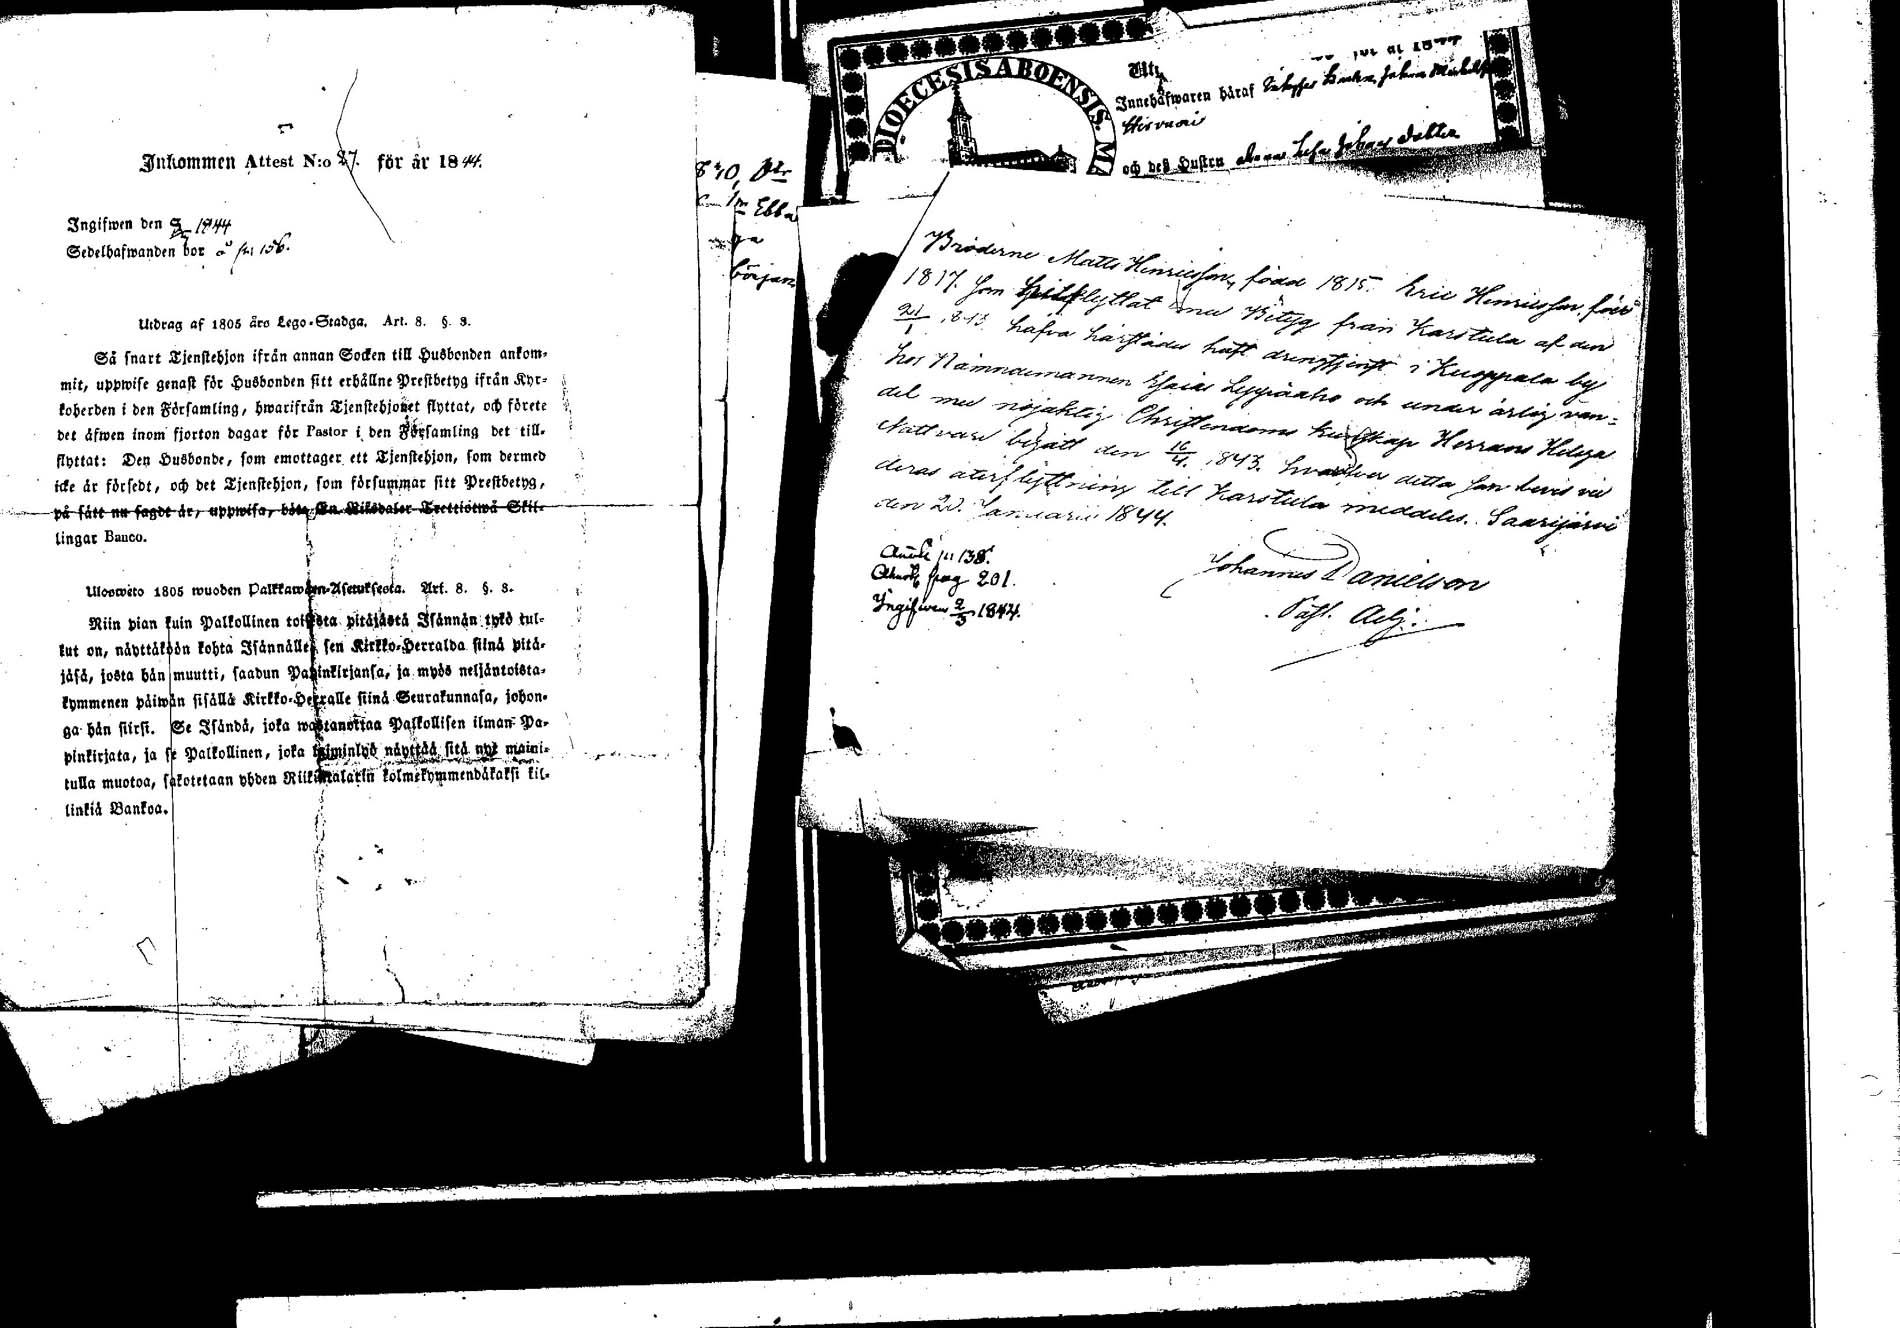 Inkommen Attest N:o 27. för år 1844.
Ingifwen den 2/3 1844
Sedelhafwanden bor å pag 156.
Utdrag af 1805 års Lego-Stadga. Art. 8. §. 3.
Så snart Tjenstehjon ifrån annan Socken till Husbonden ankom-
mit, uppwise genast för Husbonden sitt erhållne Prestbetyg ifrån Kyr-
koherden i den Församling, hwarifrån Tjenstehjonet flyttat, och förete
det äfwen inom fjorton dagar för Pastor i den Församling det till-
flyttat: Den Husbonde, som emottager ett Tjenstehjon, som dermed
icke är försedt, och det Tjenstehjon, som försummar sitt Prestbetyg,
på sätt nu sagdt är, uppwisa, böte En Riksdaler Trettiotwå Skil-
lingar Banco.
Ulosweto 1805 wuoden Palkkawäen-Asetuksesta. Art. 8. §. 3.
Niin pian kuin Palkollinen toisesta pitäjästä Isännän tykö tul-
kut on, näyttäköön kohta Isännälle, sen Kirkko-Herralda siinä pitä-
jäsä, josta hän muutti, saadun Papinkirjansa, ja myös neljäntoista-
kymmenen päiwän sisällä Kirkko-Herralle siinä Seurakunnasa, johon-
ga hän siirsi. Se Isändä, joka wastanottaa Palkollisen ilman Pa-
pinkirjata, ja se Palkollinen, joka laiminlyö näyttää sitä nyt maini-
tulla muotoa, sakotetaan yhden Riikintalarin kolmekymmendäkaksi kil-
linkiä Bankoa.
Ebba
ga
början
DIOECESIS ABOENSIS. MA
Innehafwaren häraf Johan
och deß Hustru
Bröderne Matts Henricsson, född 1815. Eric Henricsson född
1817. som hitflyttat med Betyg från Karstula af den
21/1 1843. hafva härstädes haft drengtjenst i Kuoppala by
hos Nämndemannen Esaias Leppäaho och under ärlig van-
del med nöjaktig Christendoms kunskap Herrans Heliga
Nattvard begått den 16/4 1843. hvaröfver detta san bevis vid
deras återflyttning till Karstula meddeles. Saarijärvi
den 20. Januarii 1844.
Johannes Danielson
Past. Adj.
pag 138.
pag 201.
Ingifwen 2/3 1844.